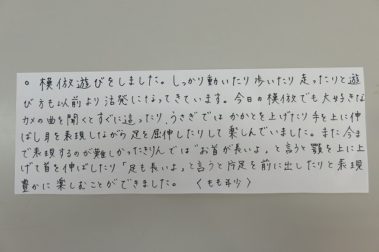 ○ 模倣遊びをしました。しっかり動いたり歩いたり走ったりと遊
び方も以前より活発になってきています。今日の模倣でも大好きな
カメの曲を聞くとすぐに這ったり、うさぎではかかとを上げたり手を上に伸
ばし耳を表現しながら足を屈伸したりして楽しんでいました。また今ま
で表現するのが難しかったきりんでは"お首が長いよ"と言うと顎を上に上
げて首を伸ばしたり「足も長いよ」と言うと片足を前に出したりと表現
豊かに楽しむことができました。